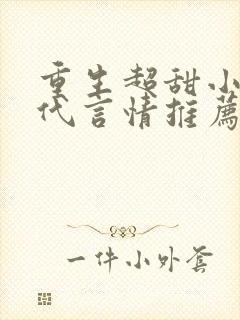 重生超甜小
代言情推薦
一件小外套